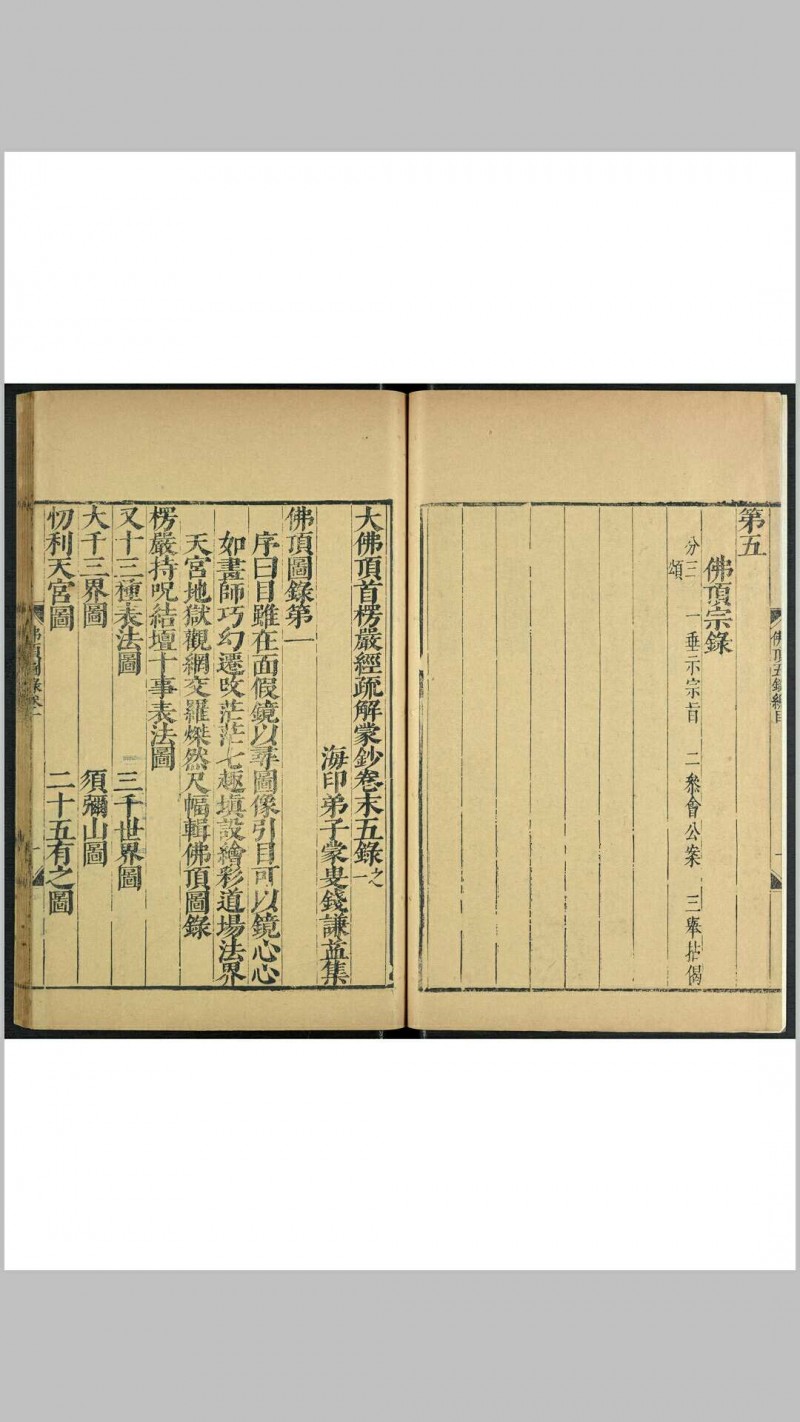 第五
佛頂宗錄
分三　一垂示宗旨　二叅會公案　三舉拈偈
頌
佛頂五錄總目
大佛頂首楞嚴經疏解蒙鈔卷末五錄之一
海印弟子蒙叟錢謙益集
佛頂圖錄第一
序曰目雖在面假鏡以尋圖像引目可以鏡心心
如畫師巧幻遷改茫茫七趣填設繪彩道場法界
天宮地獄觀網交羅燦然尺幅輯佛頂圖錄
楞嚴持呪結壇十事表法圖
又十三種表法圖　三千世界圖
大千三界圖　須彌山圖
忉利天宮圖　二十五有之圖
佛頂圖錄卷一
一